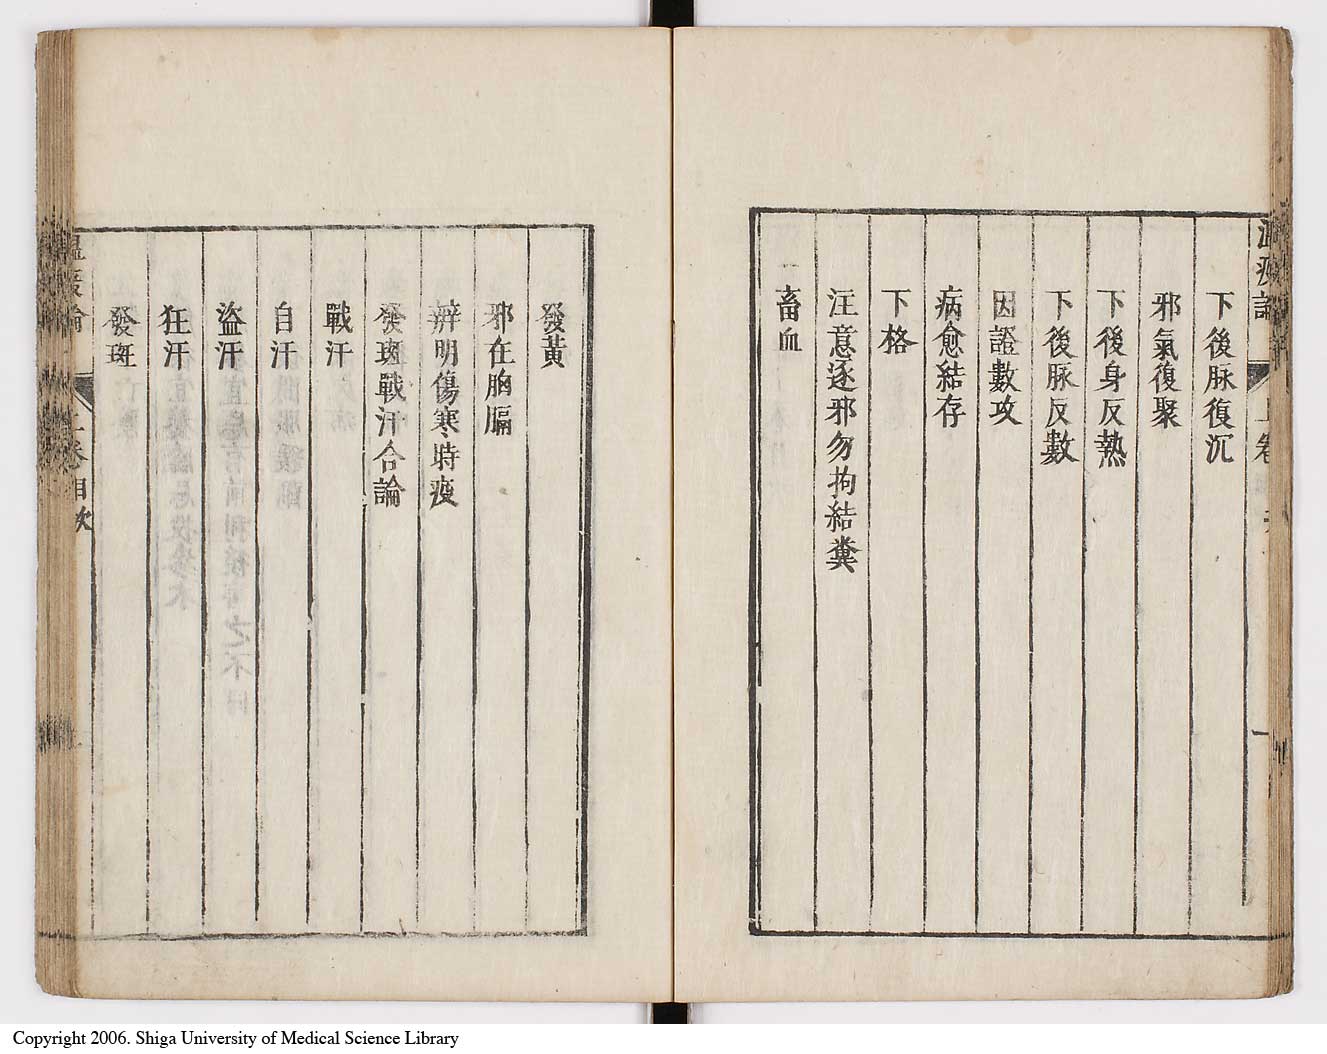 下後脉復沉
邪氣復聚
下後身反熱
下後脉反數
因證數攻
病愈結存
下格
注意逐邪勿拘結糞
畜血
發黃
邪在胸膈
辨明傷寒時疫
發斑戰汗合論
戰汗
自汗
盜汗
狂汗
發斑
Copyright 2006. Shiga University of Medical Science Library